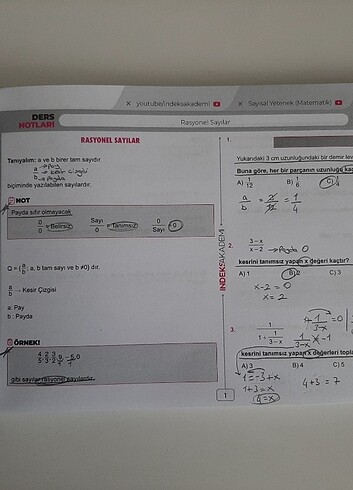 youtube/indeksakademi
Sayısal Yetenek (Matematik)
DERS
NOTLARI
Rasyonel Sayılar
RASYONEL SAYILAR
Tanıyalım: a ve b birer tam sayıdır.
a → Pay
→ kesir Çizgisi
b → Payda
biçiminde yazılabilen sayılardır.
NOT
Payda sıfır olmayacak
0/0 Belirsiz Sayı/0 Tanımsız 0/Sayı = 0
Q = {a/b : a, b tam sayı ve b ≠ 0} dır.
a/b → Kesir Çizgisi
a: Pay
b : Payda
ÖRNEK!
gibi sayılar rasyonel sayılardır.
INDEKSAKADEMİ
1
1.
Yukarıdaki 3 cm uzunluğundaki bir demir
Buna göre, her bir parçanın uzunluğu
A) 1/12 B) 1/6 C) 1/4
a/b = 3/12 = 1/4
2.
3-x/x-2 → Payda 0
kesrini tanımsız yapan x değeri kaçtır?
A) 1 B) 2 C) 3
x-2 = 0
x = 2
3.
1/1+1/3-x
kesrini tanımsız yapan x değerleri
A) 3 B) 4 C) 5
1 = -3+x
1+3 = x
4 = x
4+3 = 7